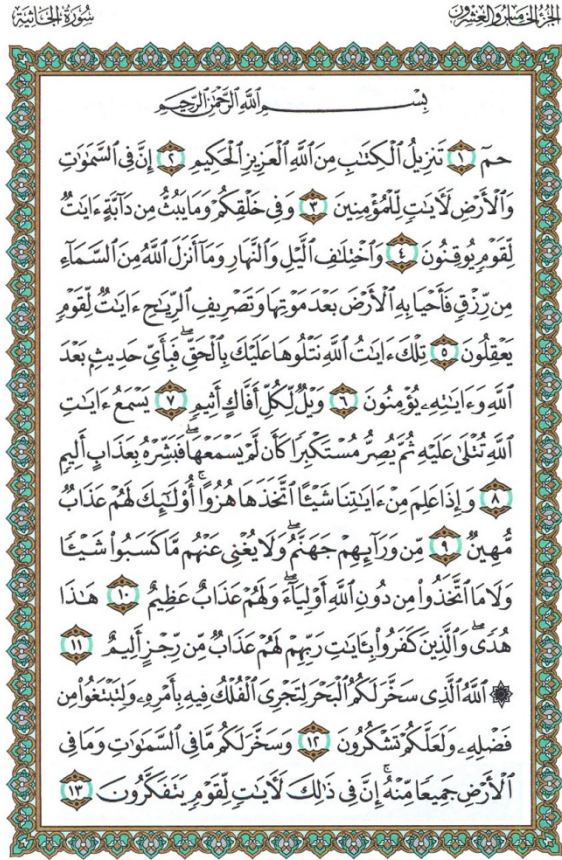 الجزء الخامس والعشرون
سورة الجاثية
بِسْمِ اللَّهِ الرَّحْمَٰنِ الرَّحِيمِ
حمٓ ١ تَنزِيلُ ٱلْكِتَٰبِ مِنَ ٱللَّهِ ٱلْعَزِيزِ ٱلْحَكِيمِ ٢ إِنَّ فِى ٱلسَّمَٰوَٰتِ
وَٱلْأَرْضِ لَءَايَٰتٍ لِّلْمُؤْمِنِينَ ٣ وَفِى خَلْقِكُمْ وَمَا يَبُثُّ مِن دَآبَّةٍ ءَايَٰتٌ
لِّقَوْمٍ يُوقِنُونَ ٤ وَٱخْتِلَٰفِ ٱلَّيْلِ وَٱلنَّهَارِ وَمَآ أَنزَلَ ٱللَّهُ مِنَ ٱلسَّمَآءِ
مِن رِّزْقٍ فَأَحْيَا بِهِ ٱلْأَرْضَ بَعْدَ مَوْتِهَا وَتَصْرِيفِ ٱلرِّيَٰحِ ءَايَٰتٌ لِّقَوْمٍ
يَعْقِلُونَ ٥ تِلْكَ ءَايَٰتُ ٱللَّهِ نَتْلُوهَا عَلَيْكَ بِٱلْحَقِّ ۖ فَبِأَىِّ حَدِيثٍۭ بَعْدَ
ٱللَّهِ وَءَايَٰتِهِۦ يُؤْمِنُونَ ٦ وَيْلٌ لِّكُلِّ أَفَّاكٍ أَثِيمٍ ٧ يَسْمَعُ ءَايَٰتِ
ٱللَّهِ تُتْلَىٰ عَلَيْهِ ثُمَّ يُصِرُّ مُسْتَكْبِرًا كَأَن لَّمْ يَسْمَعْهَا ۖ فَبَشِّرْهُ بِعَذَابٍ أَلِيمٍ
٨ وَإِذَا عَلِمَ مِنْ ءَايَٰتِنَا شَيْـًٔا ٱتَّخَذَهَا هُزُوًا ۚ أُو۟لَٰٓئِكَ لَهُمْ عَذَابٌ
مُّهِينٌ ٩ مِّن وَرَآئِهِمْ جَهَنَّمُ ۖ وَلَا يُغْنِى عَنْهُم مَّا كَسَبُوا۟ شَيْـًٔا
وَلَا مَا ٱتَّخَذُوا۟ مِن دُونِ ٱللَّهِ أَوْلِيَآءَ ۖ وَلَهُمْ عَذَابٌ عَظِيمٌ ١٠ هَٰذَا
هُدًى ۖ وَٱلَّذِينَ كَفَرُوا۟ بِـَٔايَٰتِ رَبِّهِمْ لَهُمْ عَذَابٌ مِّن رِّجْزٍ أَلِيمٌ ١١
۞ ٱللَّهُ ٱلَّذِى سَخَّرَ لَكُمُ ٱلْبَحْرَ لِتَجْرِىَ ٱلْفُلْكُ فِيهِ بِأَمْرِهِۦ وَلِتَبْتَغُوا۟ مِن
فَضْلِهِۦ وَلَعَلَّكُمْ تَشْكُرُونَ ١٢ وَسَخَّرَ لَكُم مَّا فِى ٱلسَّمَٰوَٰتِ وَمَا فِى
ٱلْأَرْضِ جَمِيعًا مِّنْهُ ۚ إِنَّ فِى ذَٰلِكَ لَءَايَٰتٍ لِّقَوْمٍ يَتَفَكَّرُونَ ١٣